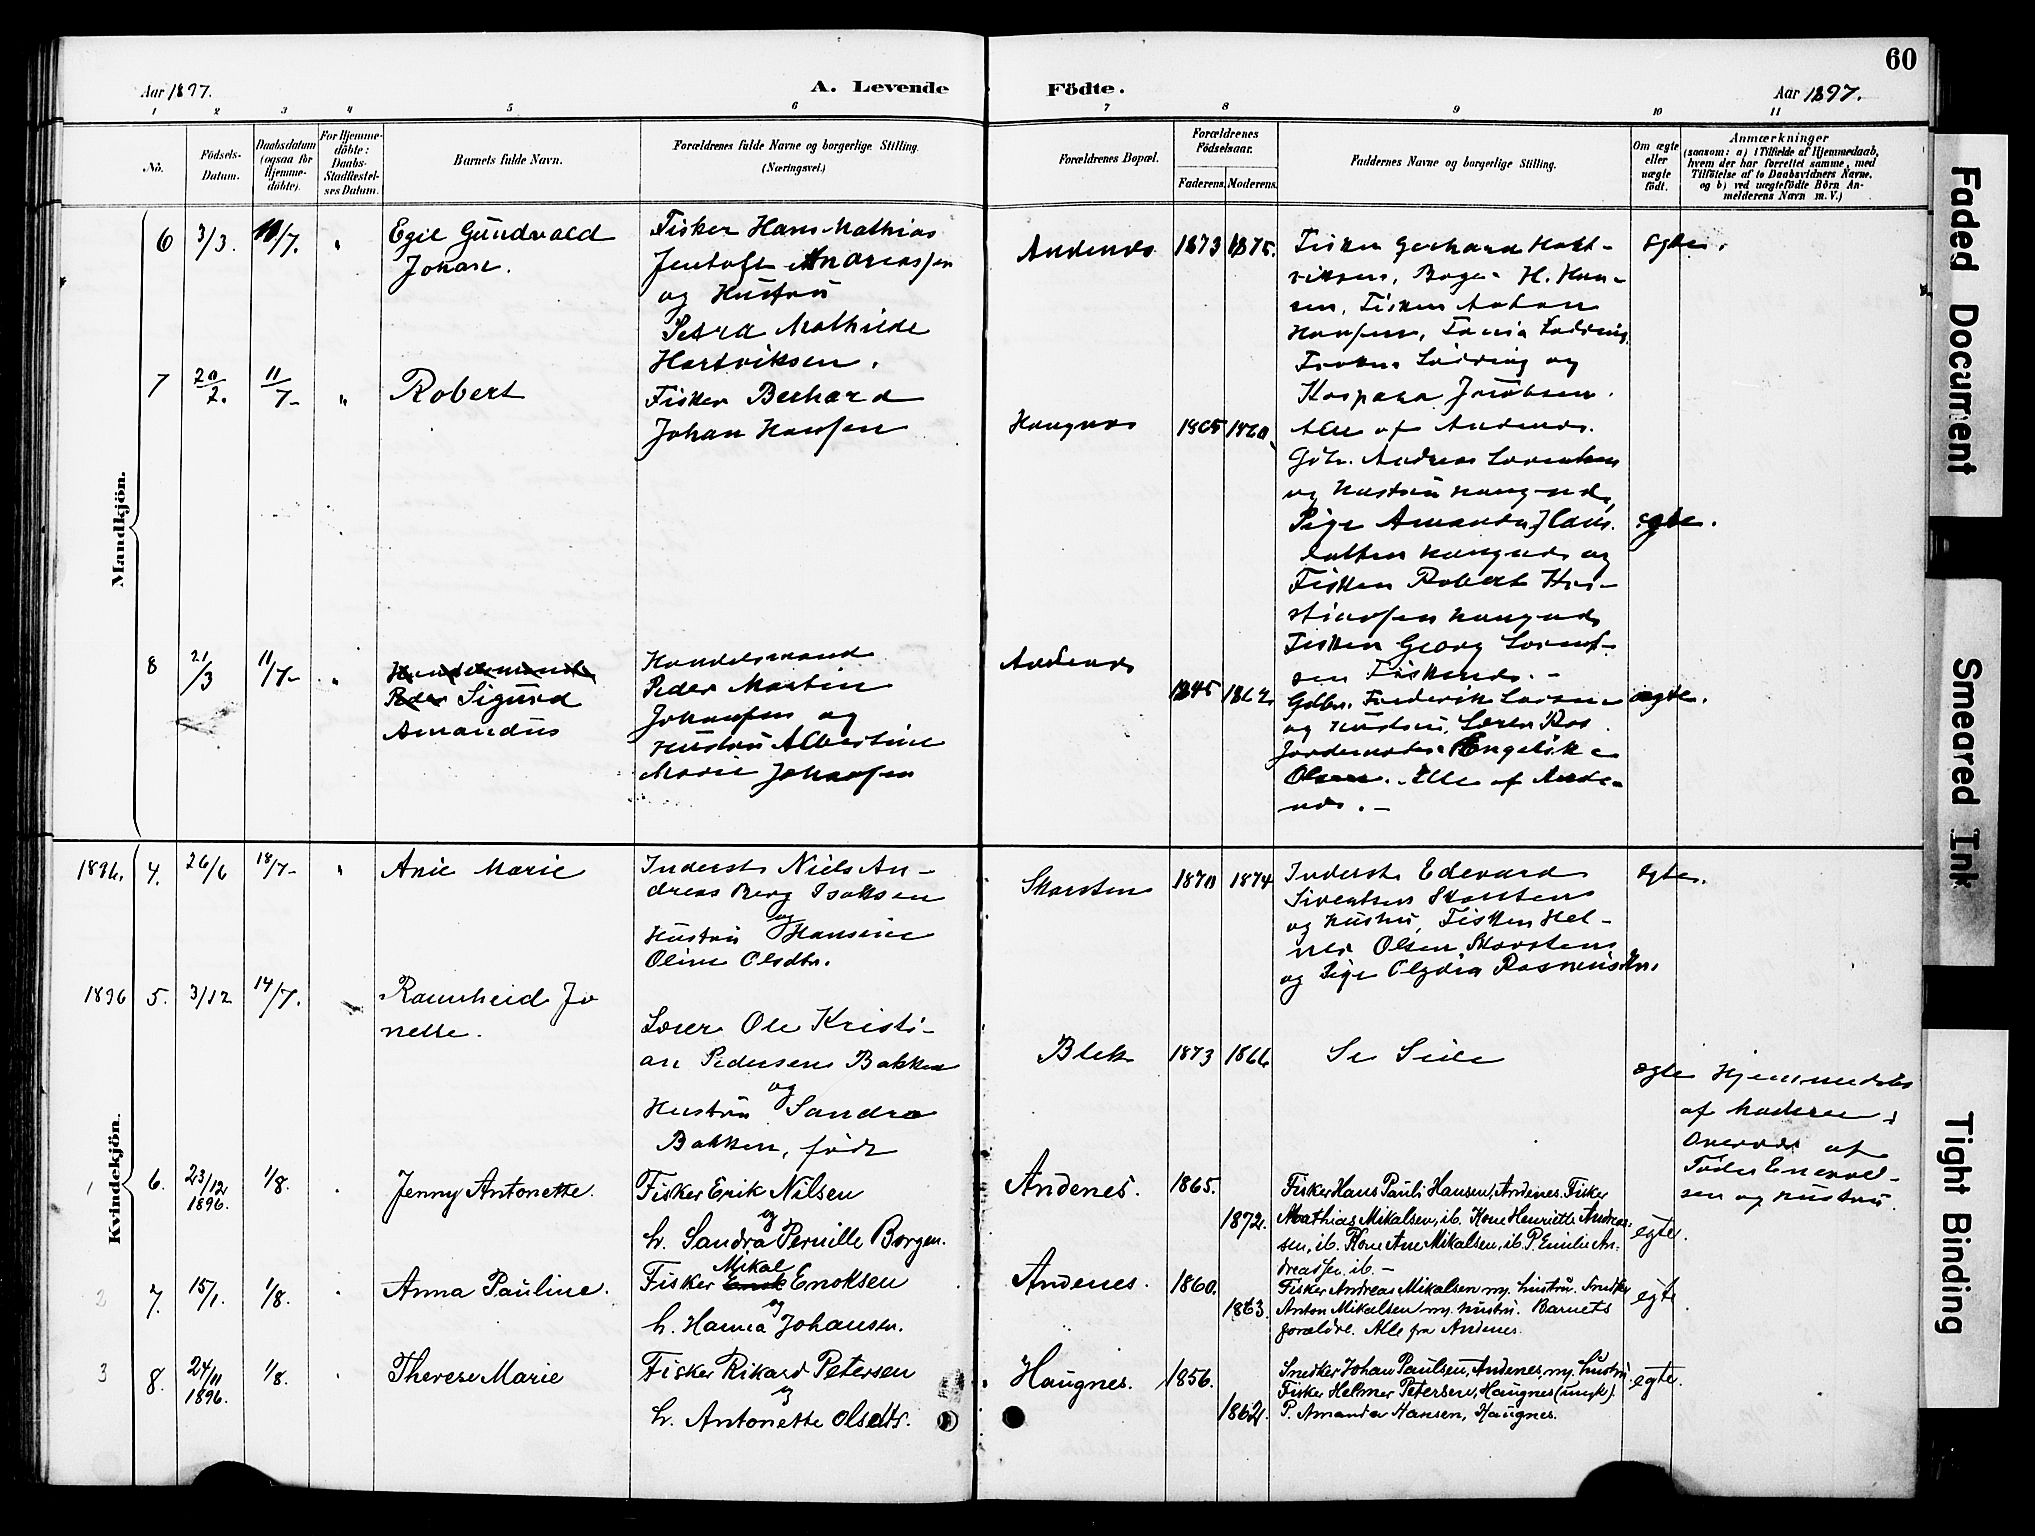 60
Aar 1897.
A. Levende Födte.
Aar 1897.
1 2 3 4 5 6 7 8 9 10 11
No.
Födsels-
Datum.
Daabsdatum
(ogsaa for
Hjemme-
döbte).
For Hjemme-
döbte:
Daabs-
Stadfæstel-
ses Datum.
Barnets fulde Navn.
Forældrenes fulde Navne og borgerlige Stilling.
(Næringsvei.)
Forældrenes Bopæl.
Forældrenes
Födselsaar.
Faderens. Moderens.
Faddernes Navne og borgerlige Stilling.
Om ægte
eller
uægte
födt.
Anmærkninger
(saasom: a) i Tilfælde af Hjemmedaab,
hvem der har forrettet samme, med
Tilföielse af to Daabsvidners Navne,
og b) ved uægtefödte Börn An-
melderens Navn m. V.)
Mandkjön.
6 3/3. 11/7. "
Egil Gundvald
Johan.
Fisker Hans Mathias
Jentoft Andreassen
og Hustru
Petra Mathilde
Hartviksen.
Andenes 1873 1875.
Fisker Gerhard Hart-
viksen, H. Han-
sen, Fisker
Hansen,
og
Kaspara Jacobsen.
Alle af Andenes.
egte.
7 20/2. 11/7- "
Robert
Fisker Berhard
Johan Hansen
Haugnes 1865 1860
Gbr. Andreas Lorentsen
og Hustru Haugnes,
Pige Amanda Hans-
datter Haugnes og
Fisker Robert Kri-
stiansen Haugnes
Fisker Georg Lorent-
sen
egte.
8 21/3 11/7- "
Handelsmand
Peder Sigurd
Amandus
Handelsmand
Peder Martin
Johansen og
Hustru Albertine
Marie Johansen
Andenes
1845 1862
Gdbr. Frederik Larsen
og Hustru, Lærer
Jordemoder Engelik
Olsen. Alle af Ande-
nes. -
ægte.
Kvindekjön.
1896. 4. 26/6 18/7- "
Anie Marie
Inderst Niels An-
dreas Berg Isaksen
og
Hustru Hansine
Oline Olsdtr.
Skarsten 1870 1874
Inderst Edevard
Sivertsen Skarsten
og Hustru, Fisker Hel-
mer Olsen Skarsten
og Pige Olydia Rasmussen.
egte.
1896 5. 3/12 14/7.
Rannheid Jo
nette.
Lærer Ole Kristi-
an Pedersen Bakken
og
Hustru Sandra
Bakken, født
Bleik 1873 1866
Se Side
ægte
Hjemmedøbt
af Moderen i
Overvær af
Peder Enevold-
sen og Hustru.
6. 23/12 1896. 1/8.
Jenny Antonette.
Fisker Erik Nilsen
og
h. Sandra Pernille Borgen.
Andenes. 1865.
1872.
Fisker Hans Pauli Hansen, Andenes. Fisker
Mathias Mikalsen, ib. Kone Henriette Andreas-
sen, ib. Kone Ane Mikalsen, ib. P. Emilie An-
dreassen ib. -
egte.
2 7. 15/1. 1/8.
Anna Pauline.
Mikal
Fisker Erik Enoksen
og
h. Hanna Johansen.
Andenes. 1860.
1863.
Fisker Andreas Mikalsen m. hustru. Snedker
Anton Mikalsen m. hustru. Barnets
forældre. Alle fra Andenes.
egte.
3 8. 24/11 1896. 1/8.
Therese Marie
Fisker Rikard Petersen
og
h. Antonette Olsdtr.
Haugnes. 1856.
1862.
Snedker Johan Paulsen, Andenes, m. hustru
Fisker Helmer Petersen, Haugnes (ungk).
P. Amanda Hansen, Haugnes.
egte.
Faded Document
Smeared Ink
Tight Binding